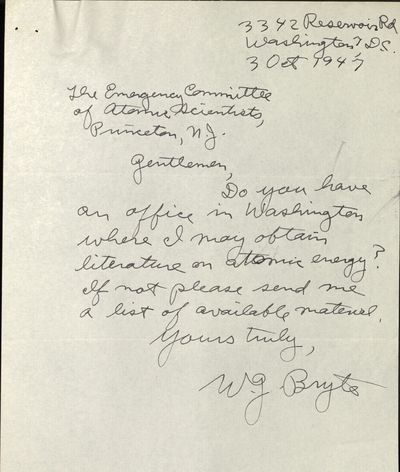 3342 Reservoir Rd
Washington 7 D.C.
3 Oct 1947
The Emergency Committee
of Atomic Scientists,
Princeton, N.J.
Gentlemen,
Do you have
an office in Washington
where I may obtain
literature on atomic energy?
If not please send me
a list of available material.
Yours truly,
W G